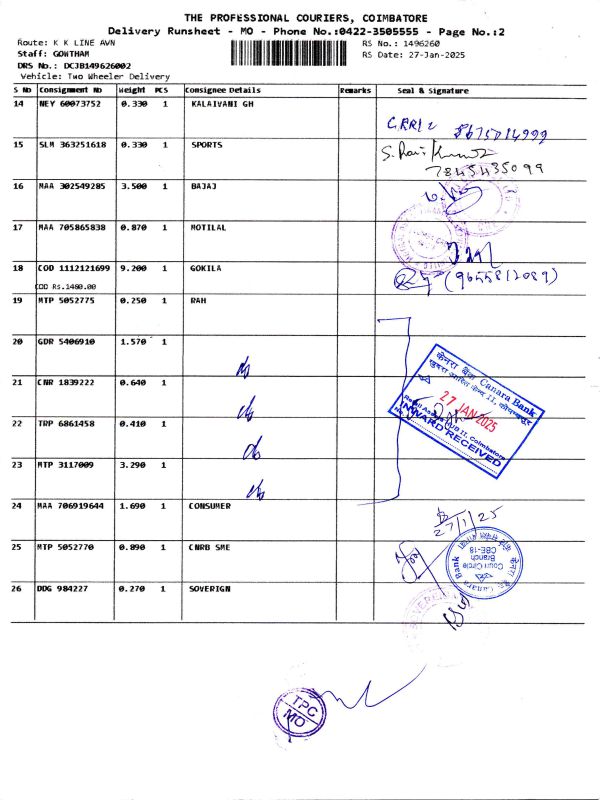 THE PROFESSIONAL COURIERS, COIMBATORE
Delivery Runsheet - MO - Phone No.:0422-3505555 - Page No.:2
Route: K K LINE AWN
Staff: GOWTHAM
DRS No.: DCJB149626002
Vehicle: Two Wheeler Delivery
RS No.: 1496260
RS Date: 27-Jan-2025
S No Consignment No Weight PCS Consignee Details Remarks Seal & Signature
14 NEY 60073752 0.330 1 KALAIVANI GH
15 SLM 363251618 0.330 1 SPORTS
7845435099
16 MAA 302549285 3.500 1 BAJAJ
17 MAA 705865838 0.870 1 MOTILAL
18 COD 1112121699 9.200 1 GOKILA
COD Rs.1460.00
(9655812089)
19 MTP 5052775 0.250 1 RAH
20 GDR 5406910 1.570 1
21 CNR 1839222 0.640 1
22 TRP 6861458 0.410 1
23 MTP 3117009 3.290 1
केनरा बैंक Canara Bank
27 JAN 2025
Retail Assets HUB II, Coimbatore
INWARD RECEIVED
24 MAA 706919644 1.690 1 CONSUMER
27/1/25
25 MTP 5052770 0.890 1 CNRB SME
केनरा बैंक Canara Bank
Court Circle
Branch
CBE-18
26 DDG 984227 0.270 1 SOVERIGN
TPC
MO